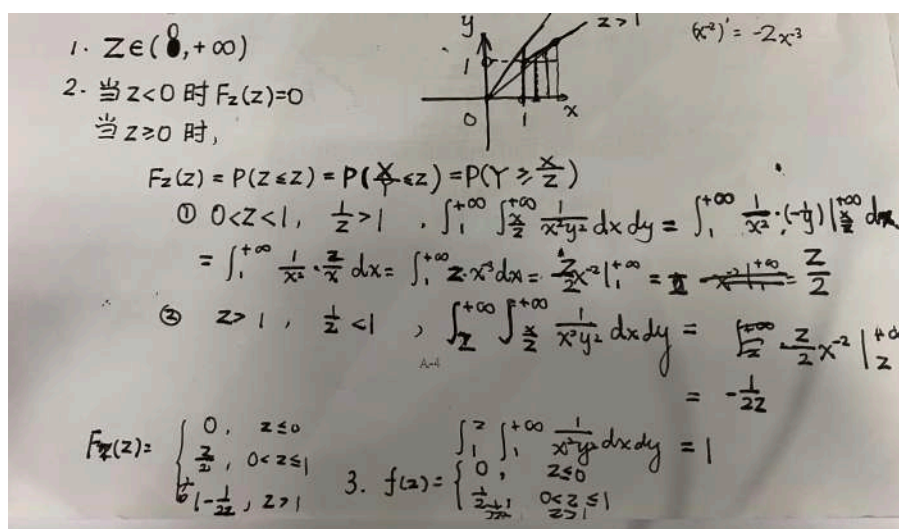 1. Z∈(0,+∞)
y z>1 (x⁻²)' = -2x⁻³
1
0 1 x
2. 当z<0时F_Z(z)=0
当z≥0时,
F_Z(z) = P(Z≤z) = P(X/Y≤z) = P(Y≥x/z)
① 0<z<1, 1/z>1 , ∫₁^{+∞} ∫_{x/z}^{+∞} 1/(x²y²) dxdy = ∫₁^{+∞} 1/x²·(-1/y)|_{x/z}^{+∞} dx
= ∫₁^{+∞} 1/x²·z/x dx = ∫₁^{+∞} z·x⁻³dx = -z/2 x⁻²|₁^{+∞} = z/2
② z>1, 1/z<1 , ∫_z^{+∞} ∫_{x/z}^{+∞} 1/(x²y²) dxdy = -z/2 x⁻²|_z^{+∞}
A-4
= -1/2z
∫₁^z ∫₁^{+∞} 1/(x²y²) dxdy = 1
F_Z(z)= { 0, z≤0
z/2, 0<z≤1
1-1/2z, z>1
3. f(z)= { 0, z≤0
1/2, 0<z≤1
z>1